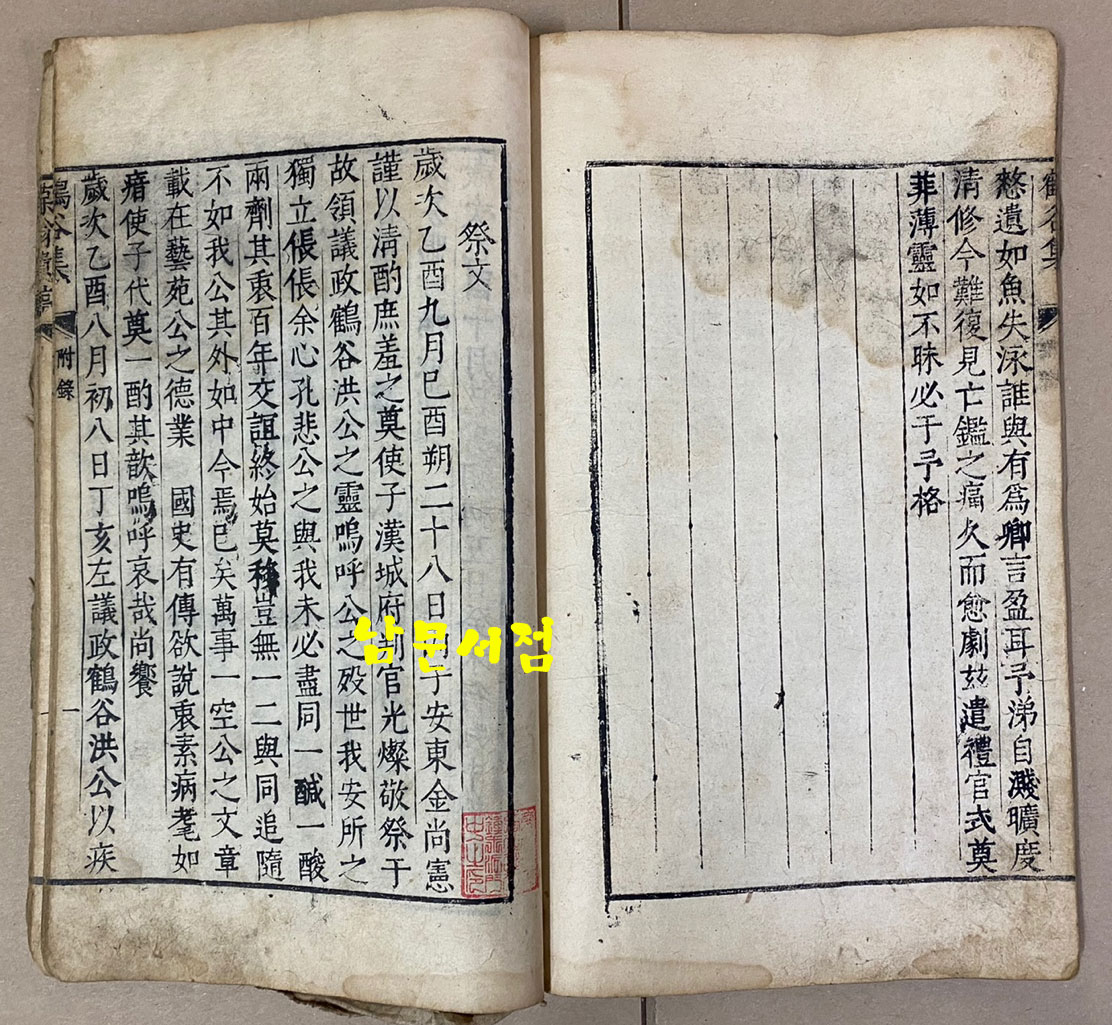 鶴谷集
憖遺如魚失泳誰與有爲卿言盈耳予涕自濺曠度
清修今難復見亡鑑之痛久而愈劇玆遣禮官式奠
菲薄靈如不昧必予予格
祭文
歲次乙酉九月己酉朔二十八日丙子安東金尙憲
謹以清酌庶羞之奠使子漢城府判官光燦敬祭于
故領議政鶴谷洪公之靈嗚呼公之殁世我安所之
獨立倀倀余心孔悲公之與我未必盡同一醎一酸
兩劑其衷百年交誼終始莫移豈無一二與同追隨
不如我公其外如中今焉已矣萬事一空公之文章
載在藝苑公之德業 國史有傳欲說衷素病耄如
瘖使子代奠一酌其歆嗚呼哀哉尙饗
歲次乙酉八月初八日丁亥左議政鶴谷洪公以疾
鶴谷集
附錄
一
남문서점